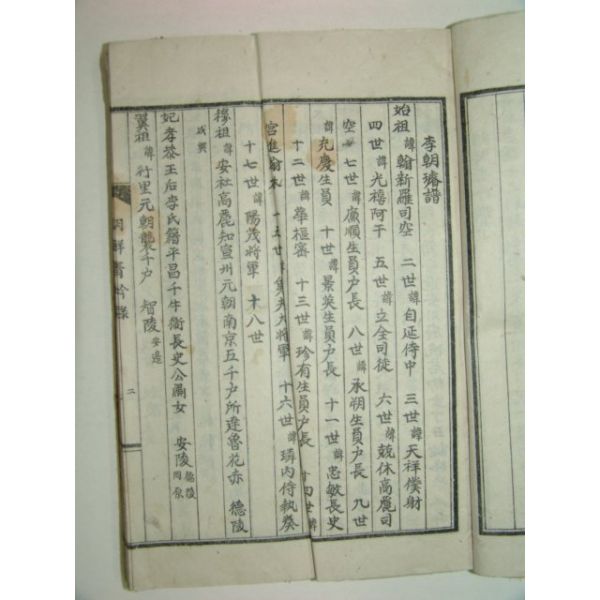 李朝璿譜
始祖 諱翰新羅司空 二世 諱自延侍中 三世 諱天祥僕射
四世 諱光禧阿干 五世 諱立全司徒 六世 諱兢休高麗司
空 七世 諱廉順生員户長 八世 諱承朔生員户長 九世
諱充慶生員 十世 諱景英生員户長 十一世 諱忠敏長史
十二世 諱華樞密 十三世 諱珍有生員户長 十四世 諱
宮進 十五世 諱 大將軍 十六世 諱璘内侍執奏
十七世 諱陽茂將軍 十八世
穆祖 諱安社高麗知宣州元朝南京五千户所達魯花赤 德陵
咸興
妃孝恭王后李氏籍平昌千牛衛長史公肅女 安陵 德陵同原
翼祖 諱行里元朝襲千户 智陵 安邊
二